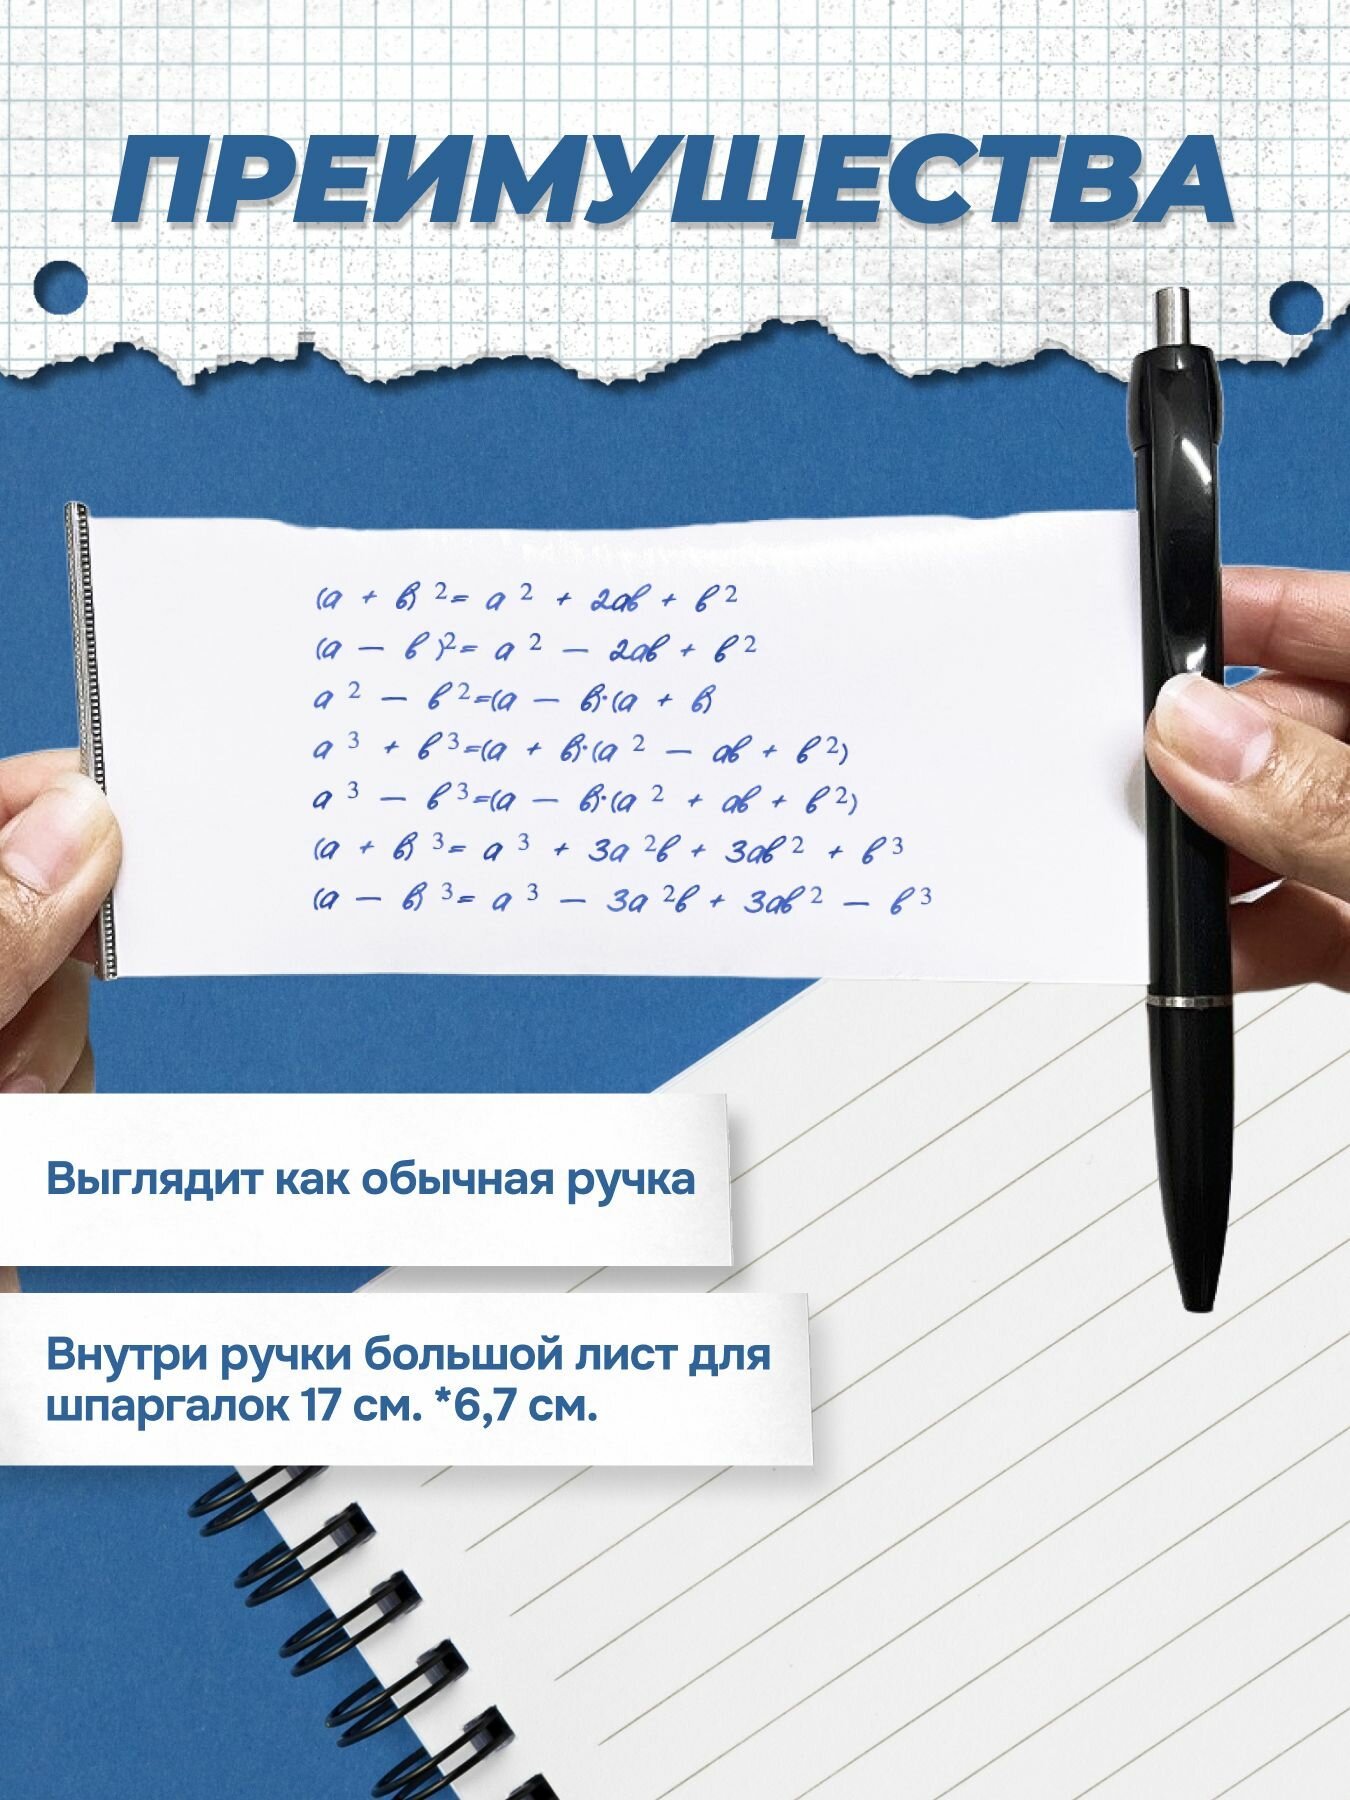 ПРЕИМУЩЕСТВА
(а + в)²= а² + 2ав + в²
(а – в)²= а² – 2ав + в²
а² – в²=(а – в)·(а + в)
а³ + в³=(а + в)·(а² – ав + в²)
а³ – в³=(а – в)·(а² + ав + в²)
(а + в)³= а³ + 3а²в + 3ав² + в³
(а – в)³= а³ – 3а²в + 3ав² – в³
Выглядит как обычная ручка
Внутри ручки большой лист для
шпаргалок 17 см. *6,7 см.